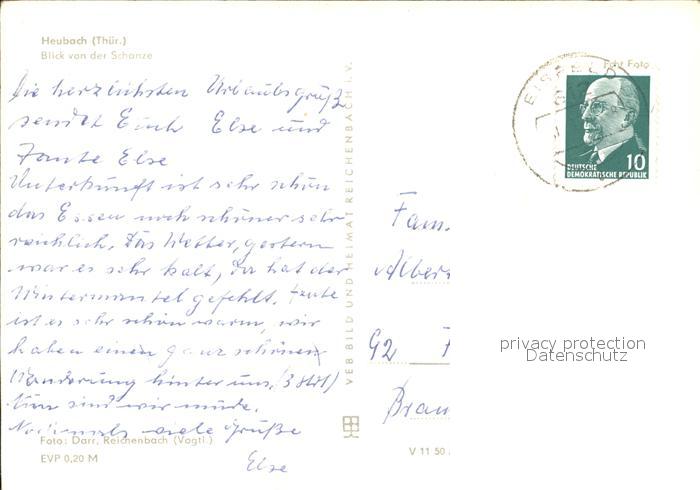 Heubach (Thür.)
Blick von der Schanze
Die herzlichsten Urlaubsgrüße
sendet Euch Else und
Tante Else
Unterkunft ist sehr schön
das Essen noch schöner sehr
reichlich. Das Wetter, gestern
war es sehr kalt, da hat der
Wintermantel gefehlt. Heute
ist es sehr schön warm, wir
haben einen ganz schönen
Wanderung hinter uns, (3 Std)
Nun sind wir müde.
Nochmals viele Grüße
Else
Foto: Darr, Reichenbach (Vogtl.)
EVP 0,20 M
VEB BILD UND HEIMAT REICHENBACH I.V.
V 11 50
Echt Foto
EISFELD
10
DEUTSCHE
DEMOKRATISCHE REPUBLIK
Fam.
Albers
92
Brau
privacy protection
Datenschutz